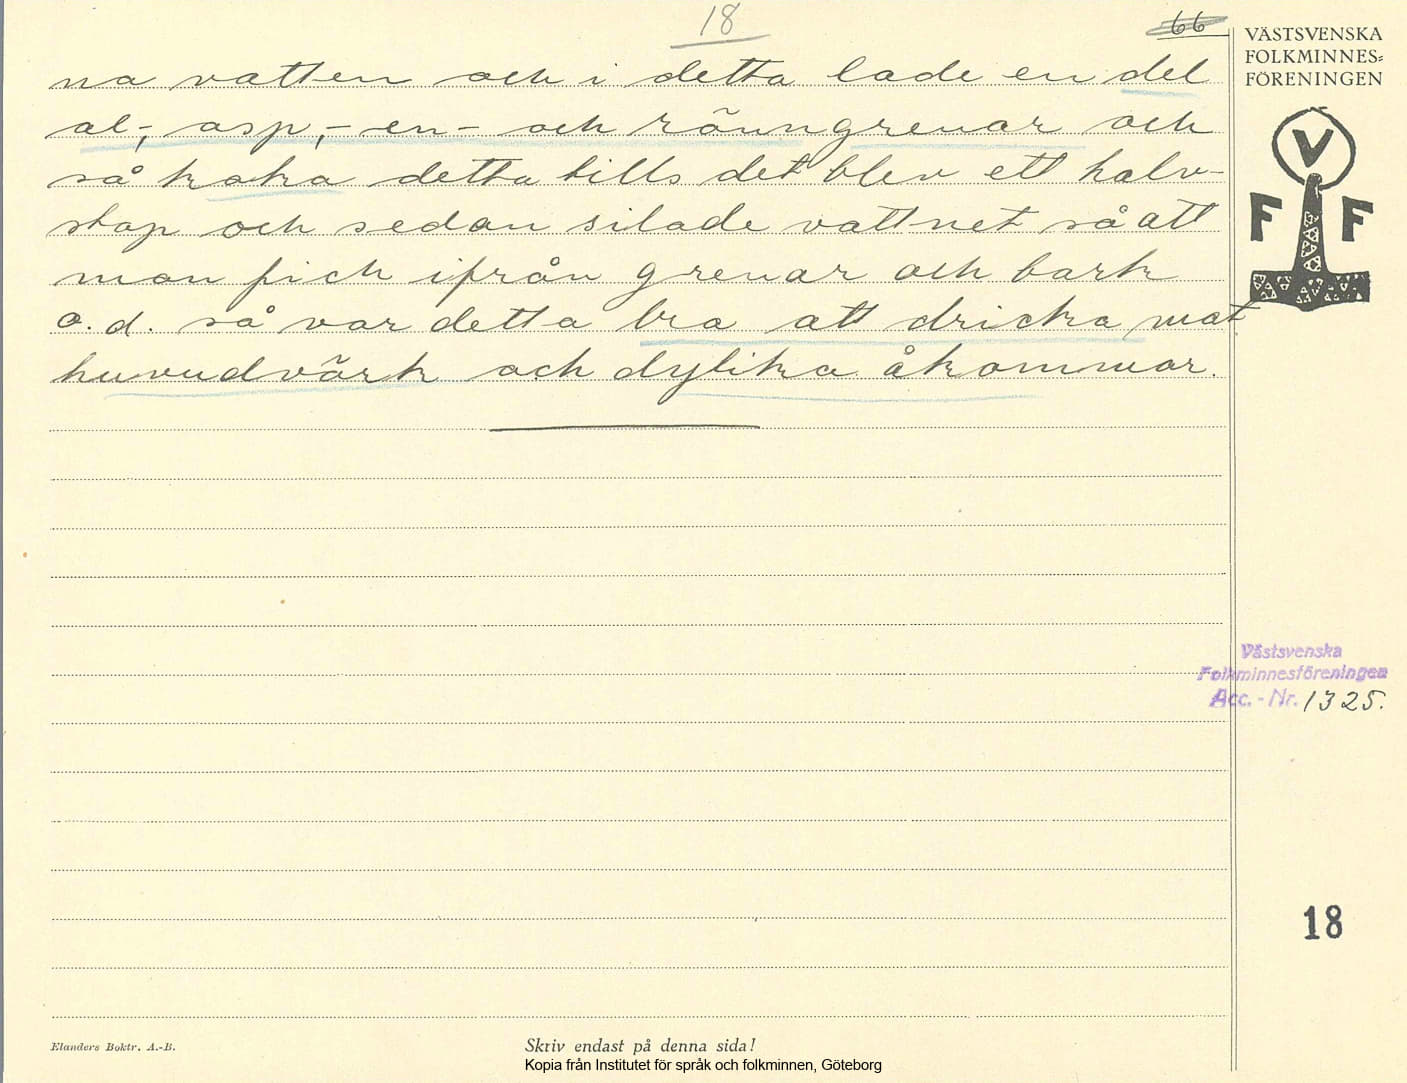 18
66
VÄSTSVENSKA
FOLKMINNES=
FÖRENINGEN
na vatten och i detta lade en del
al-, asp,- en- och rönngrenar och
så koka detta tills det blev ett halv-
stop och sedan silade vattnet så att
man fick ifrån grenar och bark
o.d. så var detta bra att dricka mot
huvudvärk och dylika åkommor.
V
F F
Västsvenska
Folkminnesföreningen
Acc. - Nr. 1325.
18
Elanders Boktr. A.-B.
Skriv endast på denna sida!
Kopia från Institutet för språk och folkminnen, Göteborg